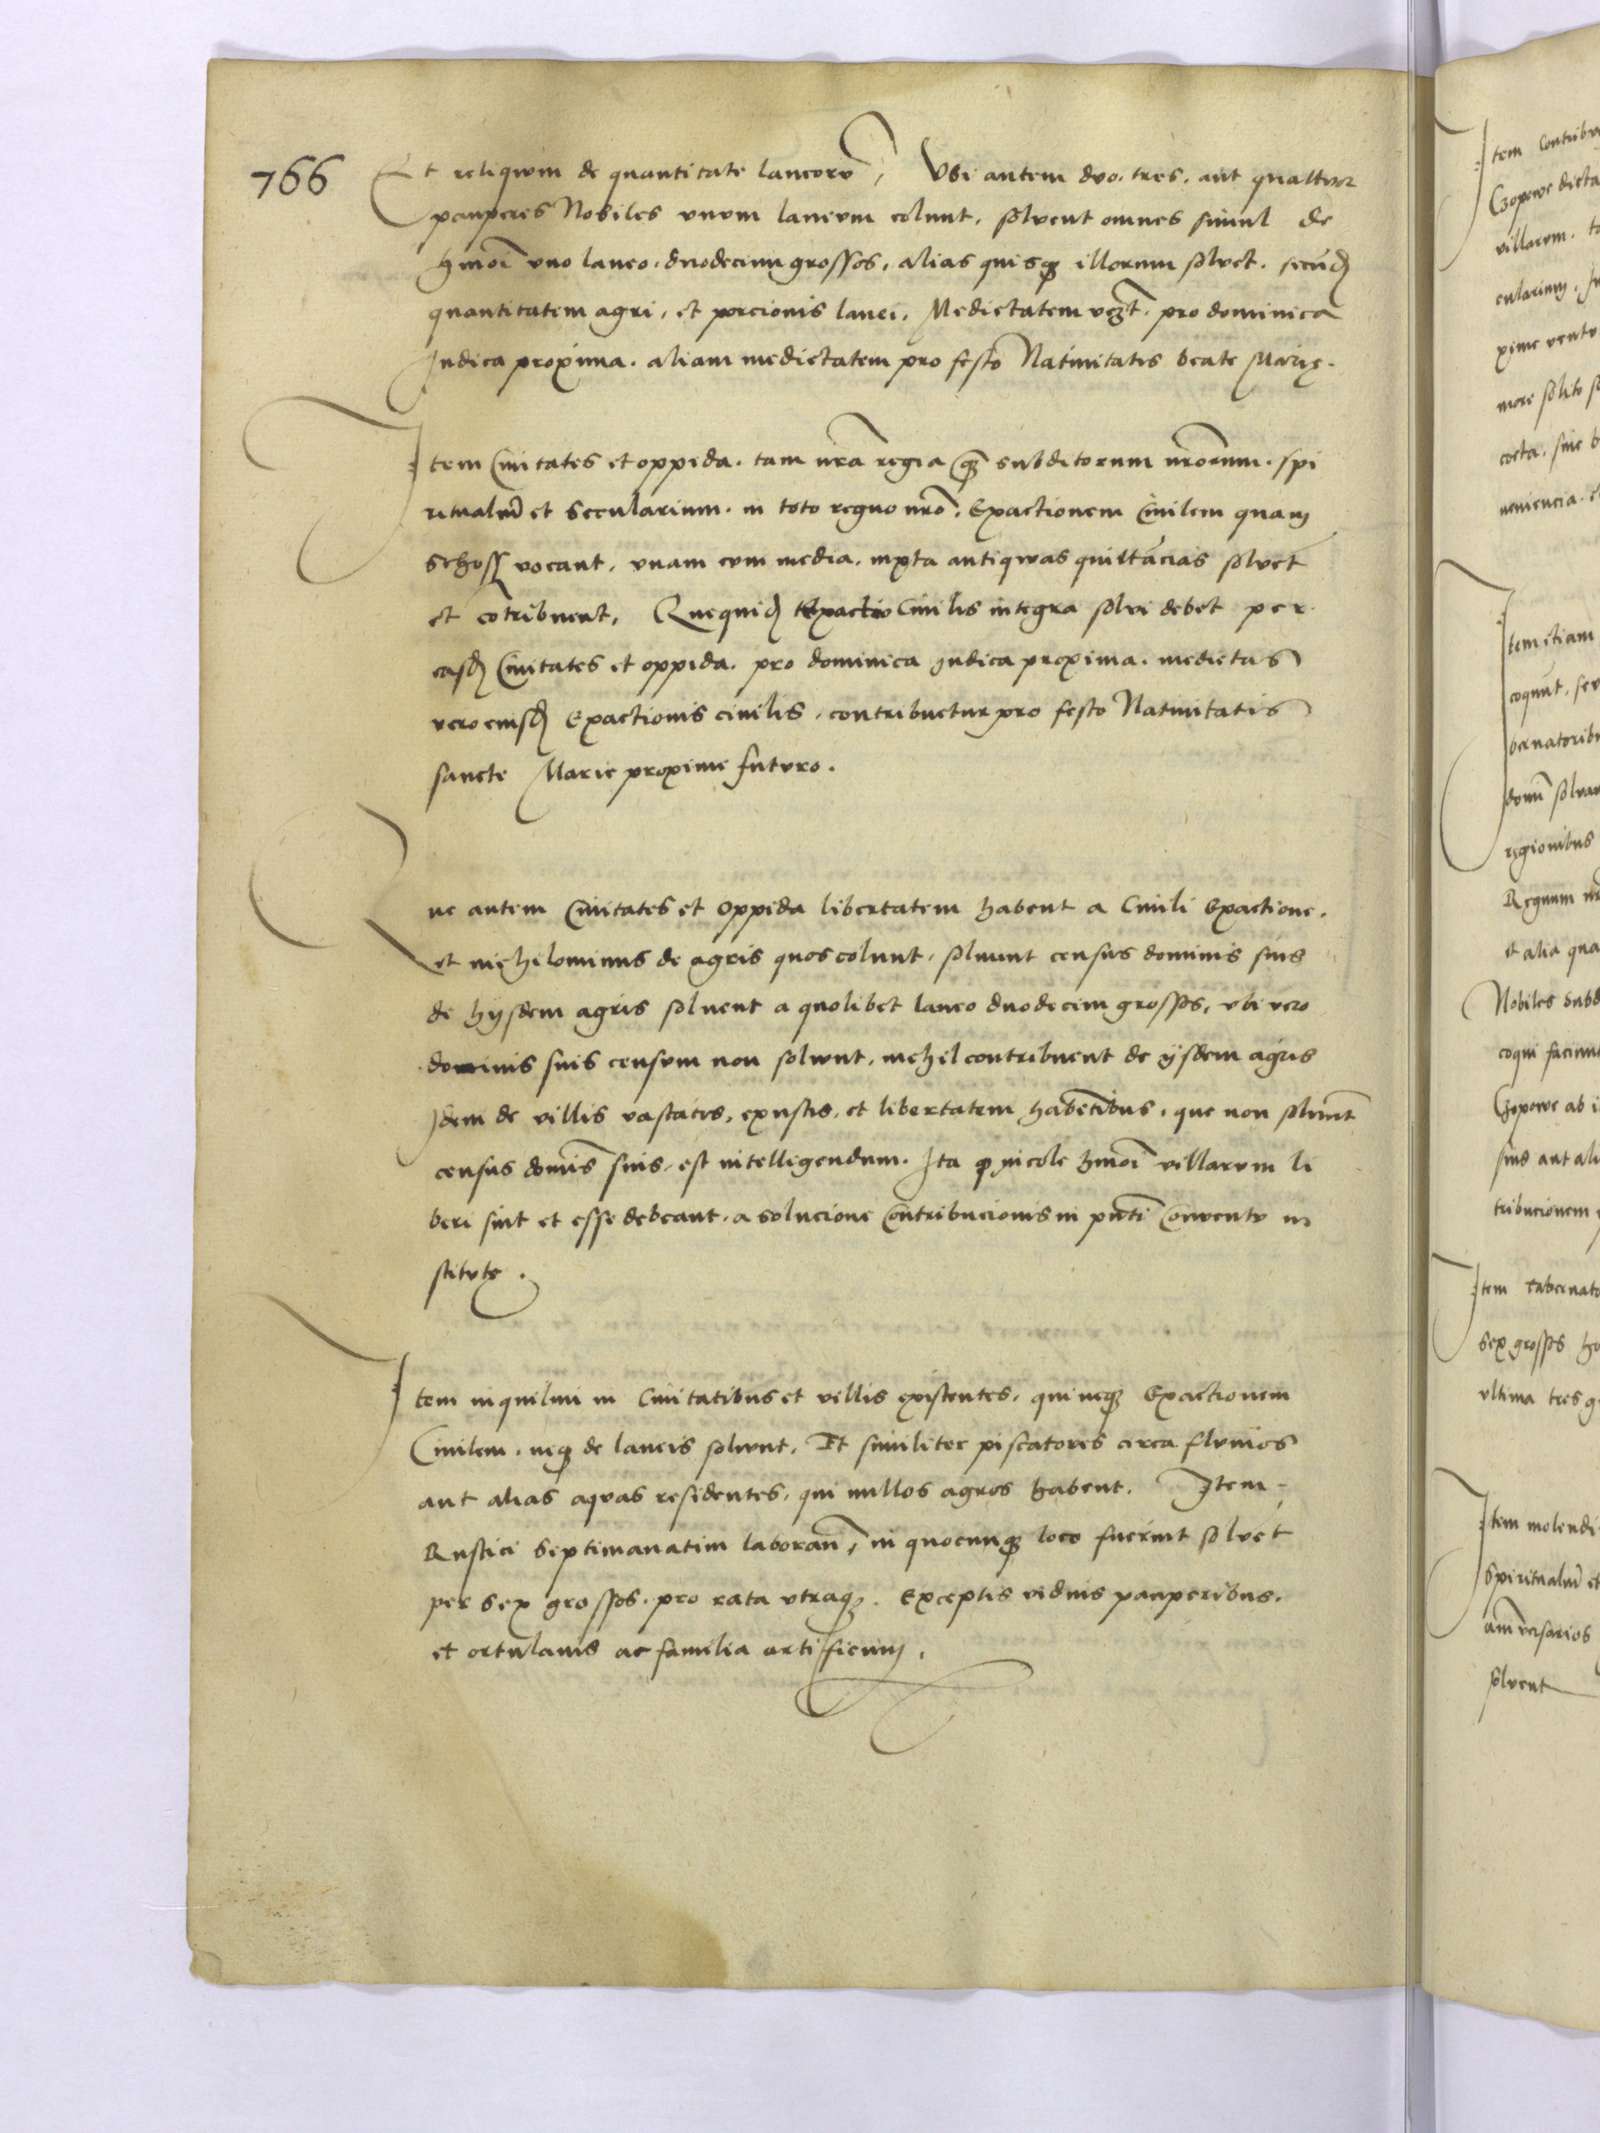 766
Et reliqwm de quantitate laneorv̄, Vbi autem dvo. tres. aut quattvor
pauperes Nobiles vnvm lanevm colunt, solvent omnes simul de
hmōi vno laneo. duodecim grossos, alias quisq illorum solvet. secūd
quantitatem agri, et porcionis lanei. Medietatem vczt. pro dominica
Judica proxima. aliam medietatem pro festo Natiuitatis beate Marię.
Item Ciuitates et oppida. tam nrā regia q̄ subditorum nrōrum. spi
ritualiū et Secularium. in toto regno nrō. Exactionem Ciuilem quam
schoss vocant, vnam cvm media. iuxta antiqwas quittācias solvēt
et cōtribuent, Quequid Exactio Ciuilis integra solui debet per
easd Ciuitates et oppida. pro dominica Judica proxima. medietas
vero eiusd Exactionis ciuilis, contribuetur pro festo Natiuitatis
sancte Marie proxime futvro.
Que autem Ciuitates et Oppida libertatem habent a Ciuili Exactione.
et nichilominus de agris quos colunt, soluunt census dominis suis
de hysdem agris soluent a quolibet laneo duodecim grossos, vbi vero
dominis suis censvm non solvunt, nichil contribuent de ijsdem agris
Idem de villis vastatis, exustis, et libertatem habētibus, que non soluūt
census domīs suis, est intelligendum. Ita q incole hmōi villarvm li
beri sint et esse debeant, a solucione Cōntribucionis in pn̄ti Conventv in
stitvtę.
Item inquilini in Ciuitatibus et villis existentes, qui neq Exactionem
Ciuilem, neq de laneis solvunt. Et similiter piscatores circa flvuios
aut alias aqvas residentes, qui nullos agros habent. Item
Rustici Septimanatim laborān, in quocunq loco fuerint solvēt
per sex grossos. pro rata vtraq. Exceptis viduis pauperibus.
et ortulanis ac familia artificum.
Item contribv
Czopowe dicta
villarvm. t
cularium. In
xime ventv
more solito s
cocta, sive b
neniencia. e
Item etiam
coqunt, sev
bernatorib
domū solva
regionibus
Regnum n
et alia qua
Nobiles Subd
coqui faciunt
Czopowe ab i
suis aut ali
tribucionem
Item Tabernato
Sex grossos h
vltima tres g
Item molendi
Spiritualiū et
anīversarios
solvent